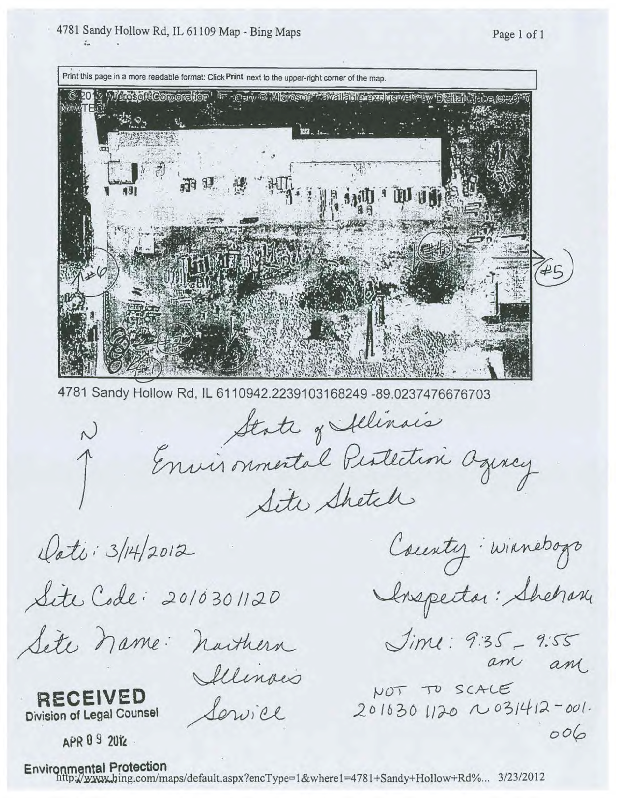 4781 Sandy Hollow Rd, IL 61109 Map - Bing Maps
Page 1 of 1
Print this page in a more readable format: Click Print next to the upper-right corner of the map.
#6
#5
4781 Sandy Hollow Rd, IL 6110942.2239103168249 -89.0237476676703
N
State of Illinois
Environmental Protection Agency
Site Sketch
Date: 3/14/2012
County: Winnebago
Site Code: 2010301120
Inspector: Shehane
Site Name: Northern
Illinois
Service
Time: 9:35 - 9:55
am am
NOT TO SCALE
2010301120 ~ 031412-001-
006
RECEIVED
Division of Legal Counsel
APR 09 2012
Environmental Protection
http://www.bing.com/maps/default.aspx?encType=1&where1=4781+Sandy+Hollow+Rd%... 3/23/2012